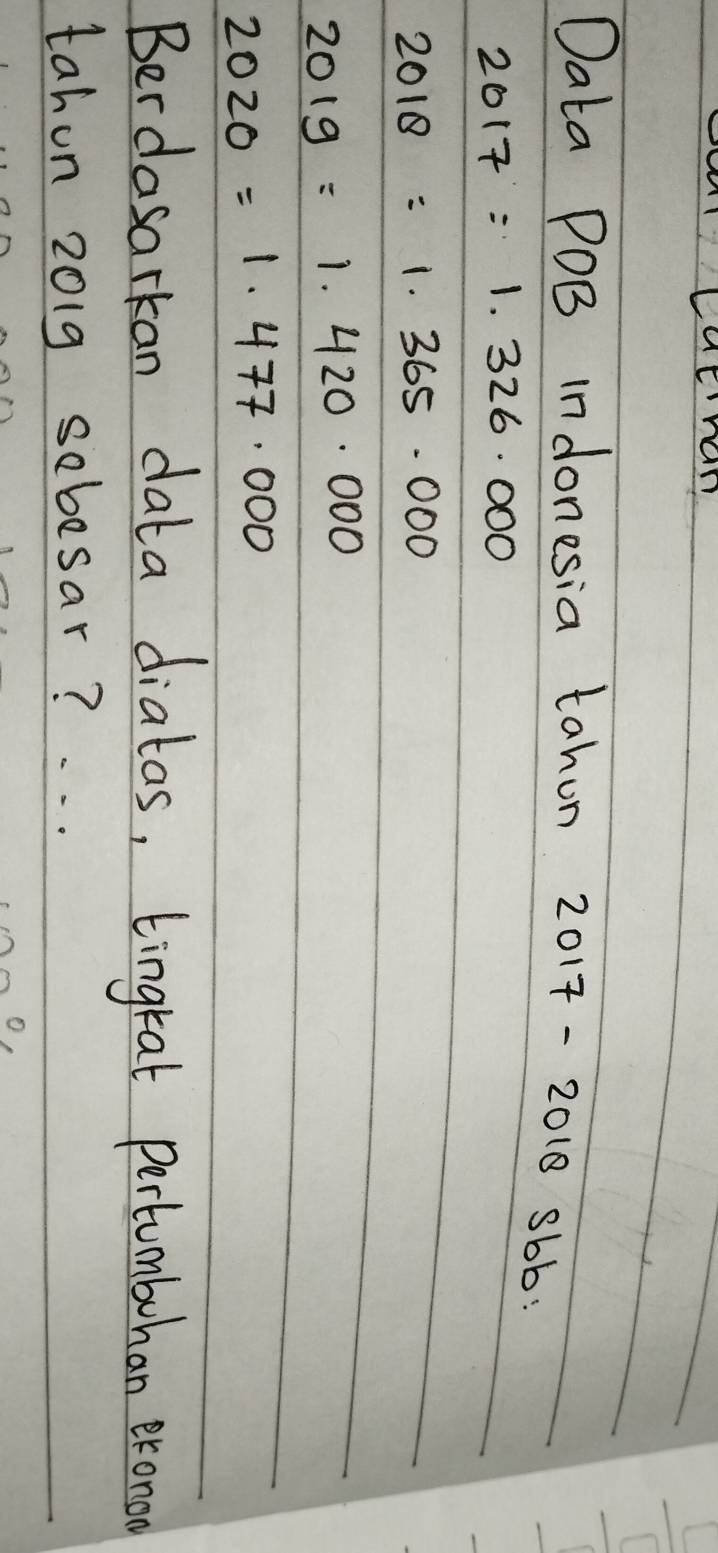 Latihan
Data PDB indonesia tahun 2017 - 2018 sbb:
2017 = 1.326.000
2018 = 1.365.000
2019 = 1.420.000
2020 = 1.477.000
Berdasarkan data diatas, tingkat pertumbuhan ekonom
tahun 2019 sebesar? ...